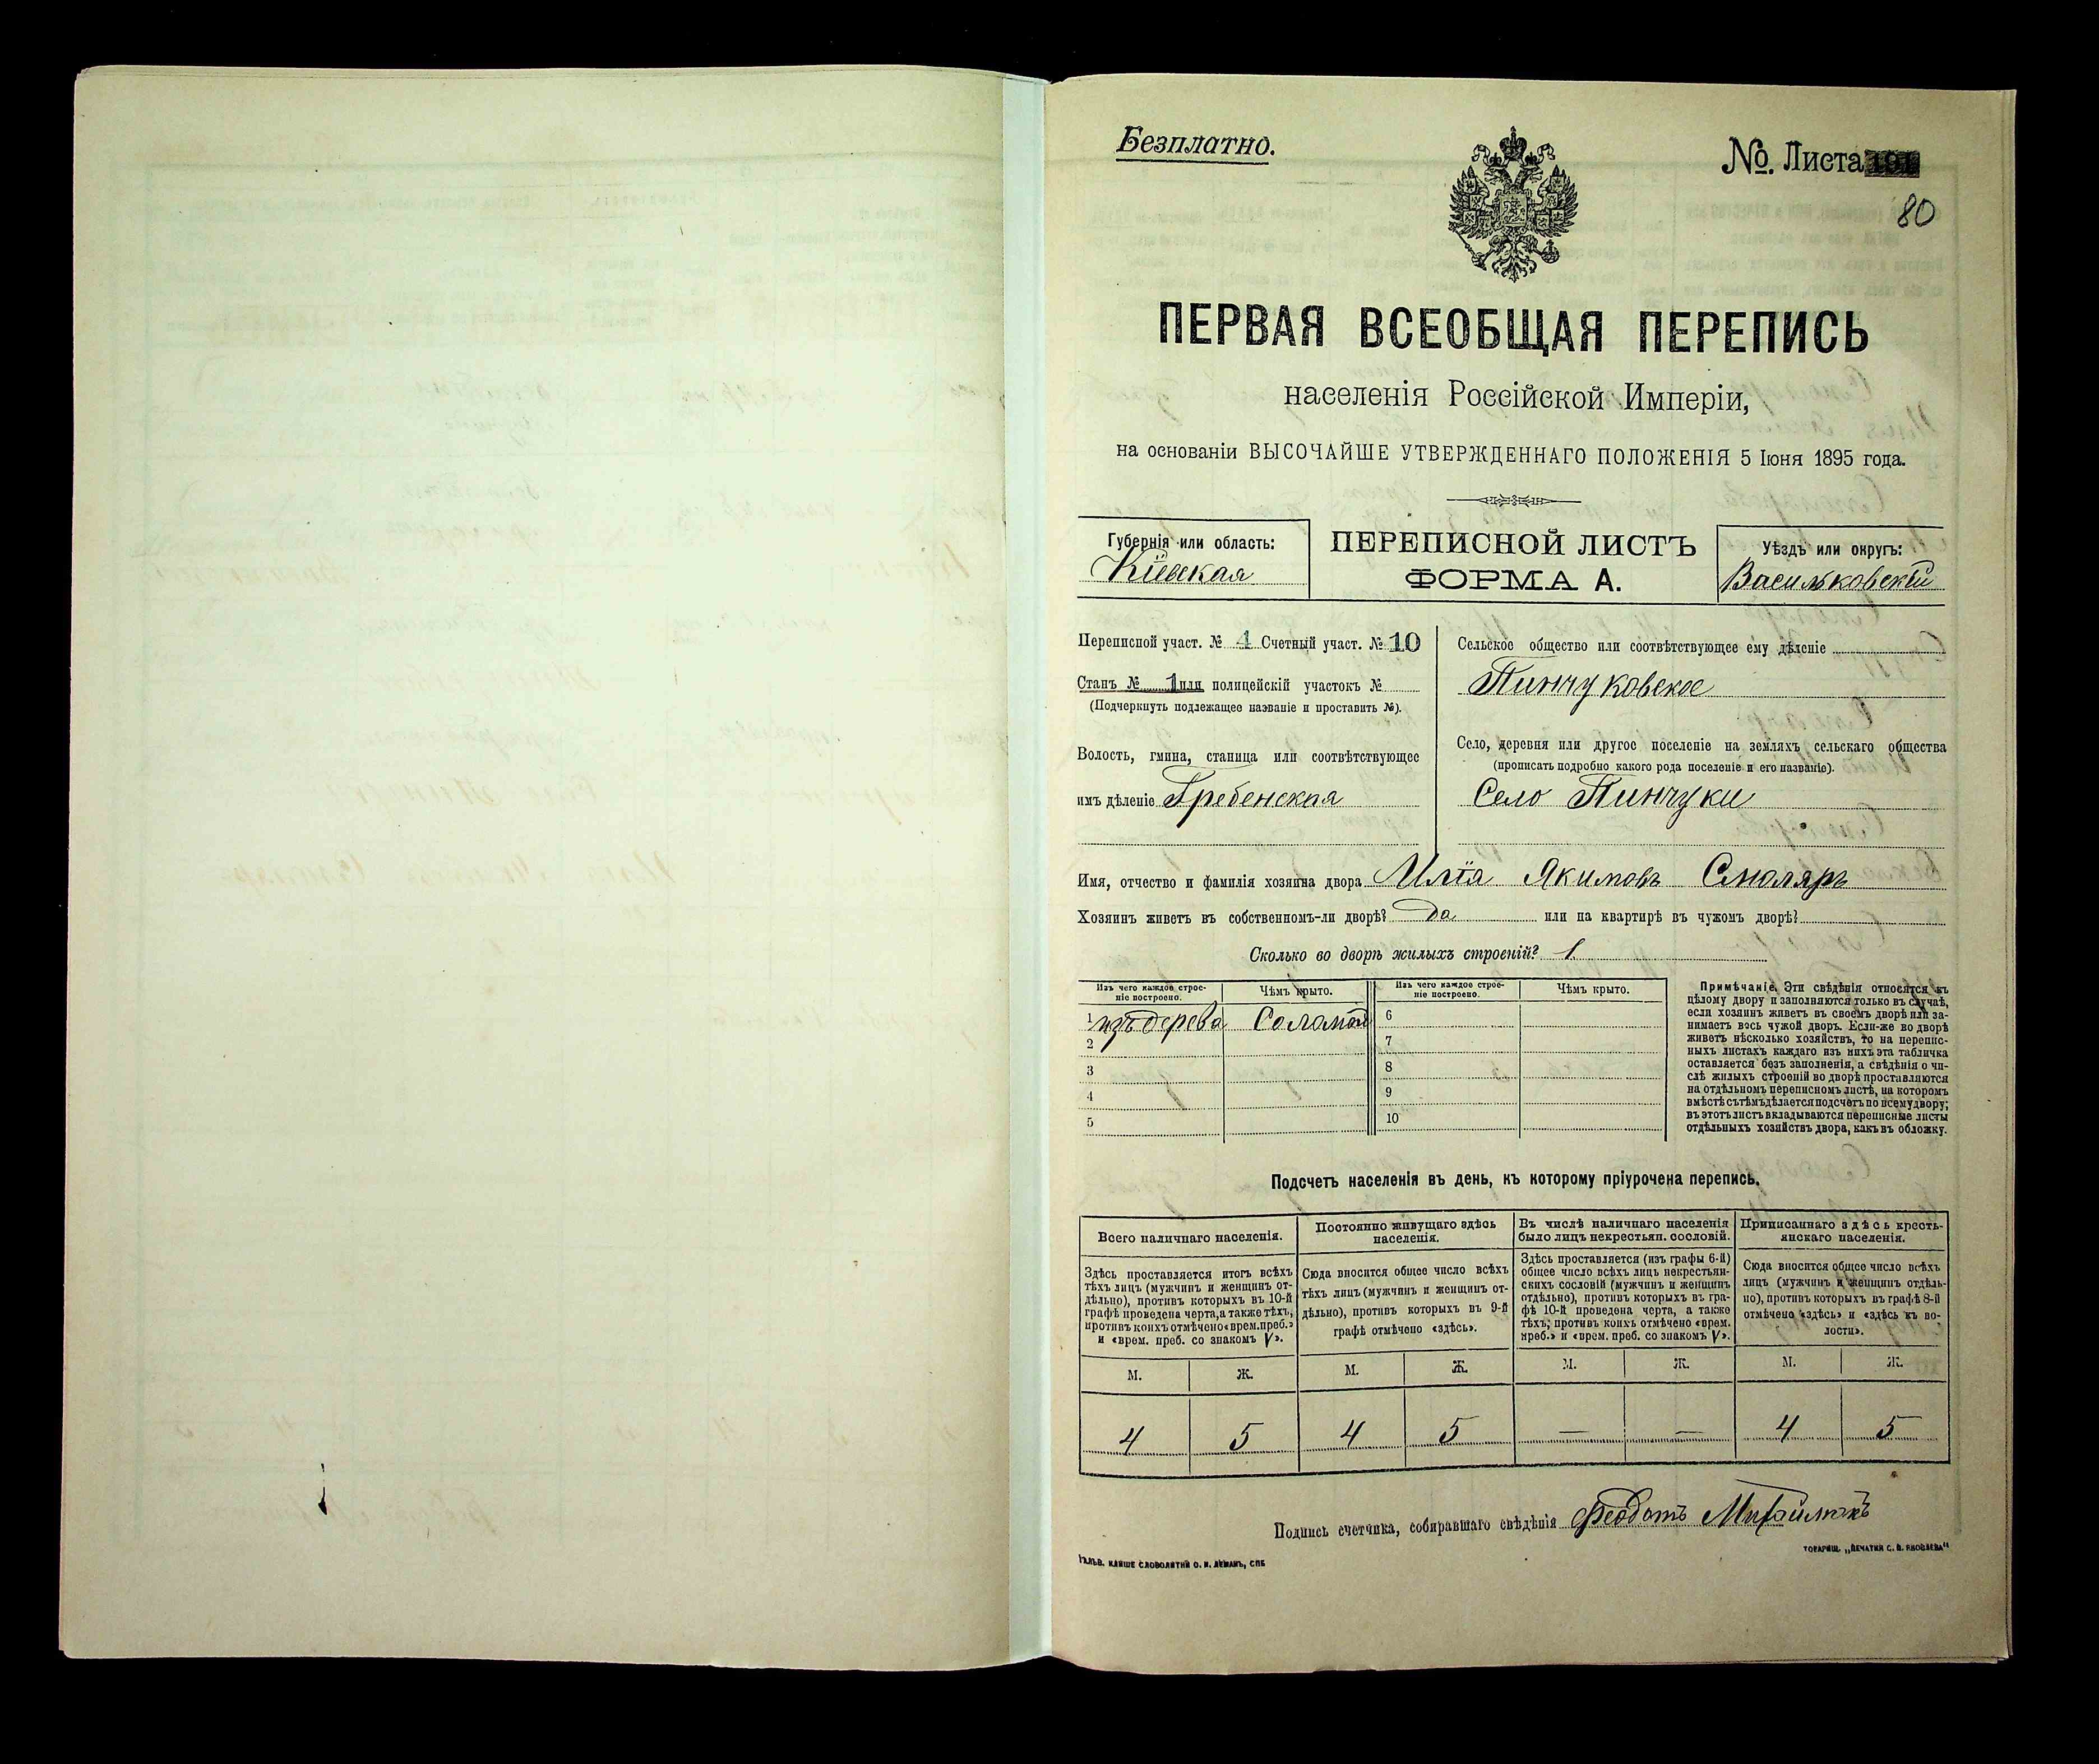 Безплатно.
№. Листа
80
ПЕРВАЯ ВСЕОБЩАЯ ПЕРЕПИСЬ
населенія Россійской Имперіи,
на основаніи ВЫСОЧАЙШЕ УТВЕРЖДЕННАГО ПОЛОЖЕНІЯ 5 Іюня 1895 года.
Губернія или область:
Кіевская
ПЕРЕПИСНОЙ ЛИСТЪ
ФОРМА А.
Уѣздъ или округъ:
Васильковскій
Переписной участ. № 1 Счетный участ. № 10
Станъ № 1 или полицейскій участокъ №
(Подчеркнуть подлежащее названіе и проставить №).
Волость, гмина, станица или соотвѣтствующее
имъ дѣленіе Гребенская
Сельское общество или соотвѣтствующее ему дѣленіе
Пинчуковское
Село, деревня или другое поселеніе на земляхъ сельскаго общества
(прописать подробно какого рода поселеніе и его названіе).
Село Пинчуки
Имя, отчество и фамилія хозяина двора Илія Якимовъ Смоляръ
Хозяинъ живетъ въ собственномъ-ли дворѣ? да или на квартирѣ въ чужомъ дворѣ?
Сколько во дворѣ жилыхъ строеній? 1
Изъ чего каждое строе-
ніе построено.
Чѣмъ крыто.
Изъ чего каждое строе-
ніе построено.
Чѣмъ крыто.
1 изъ дерева Соломой
2
3
4
5
6
7
8
9
10
Примѣчаніе. Эти свѣдѣнія относятся къ
цѣлому двору и заполняются только въ случаѣ,
если хозяинъ живетъ въ своемъ дворѣ или за-
нимаетъ весь чужой дворъ. Если-же во дворѣ
живетъ нѣсколько хозяйствъ, то на перепис-
ныхъ листахъ каждаго изъ нихъ эта табличка
оставляется безъ заполненія, а свѣдѣнія о чи-
слѣ жилыхъ строеній во дворѣ проставляются
на отдѣльномъ переписномъ листѣ, на которомъ
вмѣстѣ съ тѣмъ дѣлается подсчетъ по всему двору;
въ этотъ листъ вкладываются переписные листы
отдѣльныхъ хозяйствъ двора, какъ въ обложку.
Подсчетъ населенія въ день, къ которому пріурочена перепись.
Всего наличнаго населенія.
Здѣсь проставляется итогъ всѣхъ
тѣхъ лицъ (мужчинъ и женщинъ от-
дѣльно), противъ которыхъ въ 10-й
графѣ проведена черта, а также тѣхъ,
противъ коихъ отмѣчено «врем. преб.»
и «врем. преб. со знакомъ V».
Постоянно живущаго здѣсь
населенія.
Сюда вносится общее число всѣхъ
тѣхъ лицъ (мужчинъ и женщинъ от-
дѣльно), противъ которыхъ въ 9-й
графѣ отмѣчено «здѣсь».
Въ числѣ наличнаго населенія
было лицъ некрестьян. сословій.
Здѣсь проставляется (изъ графы 6-й)
общее число всѣхъ лицъ некрестьян-
скихъ сословій (мужчинъ и женщинъ
отдѣльно), противъ которыхъ въ гра-
фѣ 10-й проведена черта, а также
тѣхъ; противъ коихъ отмѣчено «врем.
преб.» и «врем. преб. со знакомъ V».
Приписаннаго здѣсь кресть-
янскаго населенія.
Сюда вносится общее число всѣхъ
лицъ (мужчинъ и женщинъ отдѣль-
но), противъ которыхъ въ графѣ 8-й
отмѣчено «здѣсь» и «здѣсь къ во-
лости».
М. Ж. М. Ж. М. Ж. М. Ж.
4 5 4 5 — — 4 5
Подпись счетчика, собиравшаго свѣдѣнія Феодотъ
ГАЛЬВ. КЛИШЕ СЛОВОЛИТНИ О. И. ЛЕМАНЪ, СПБ
ТОВАРИЩ. „ПЕЧАТНЯ С. П. ЯКОВЛЕВА“